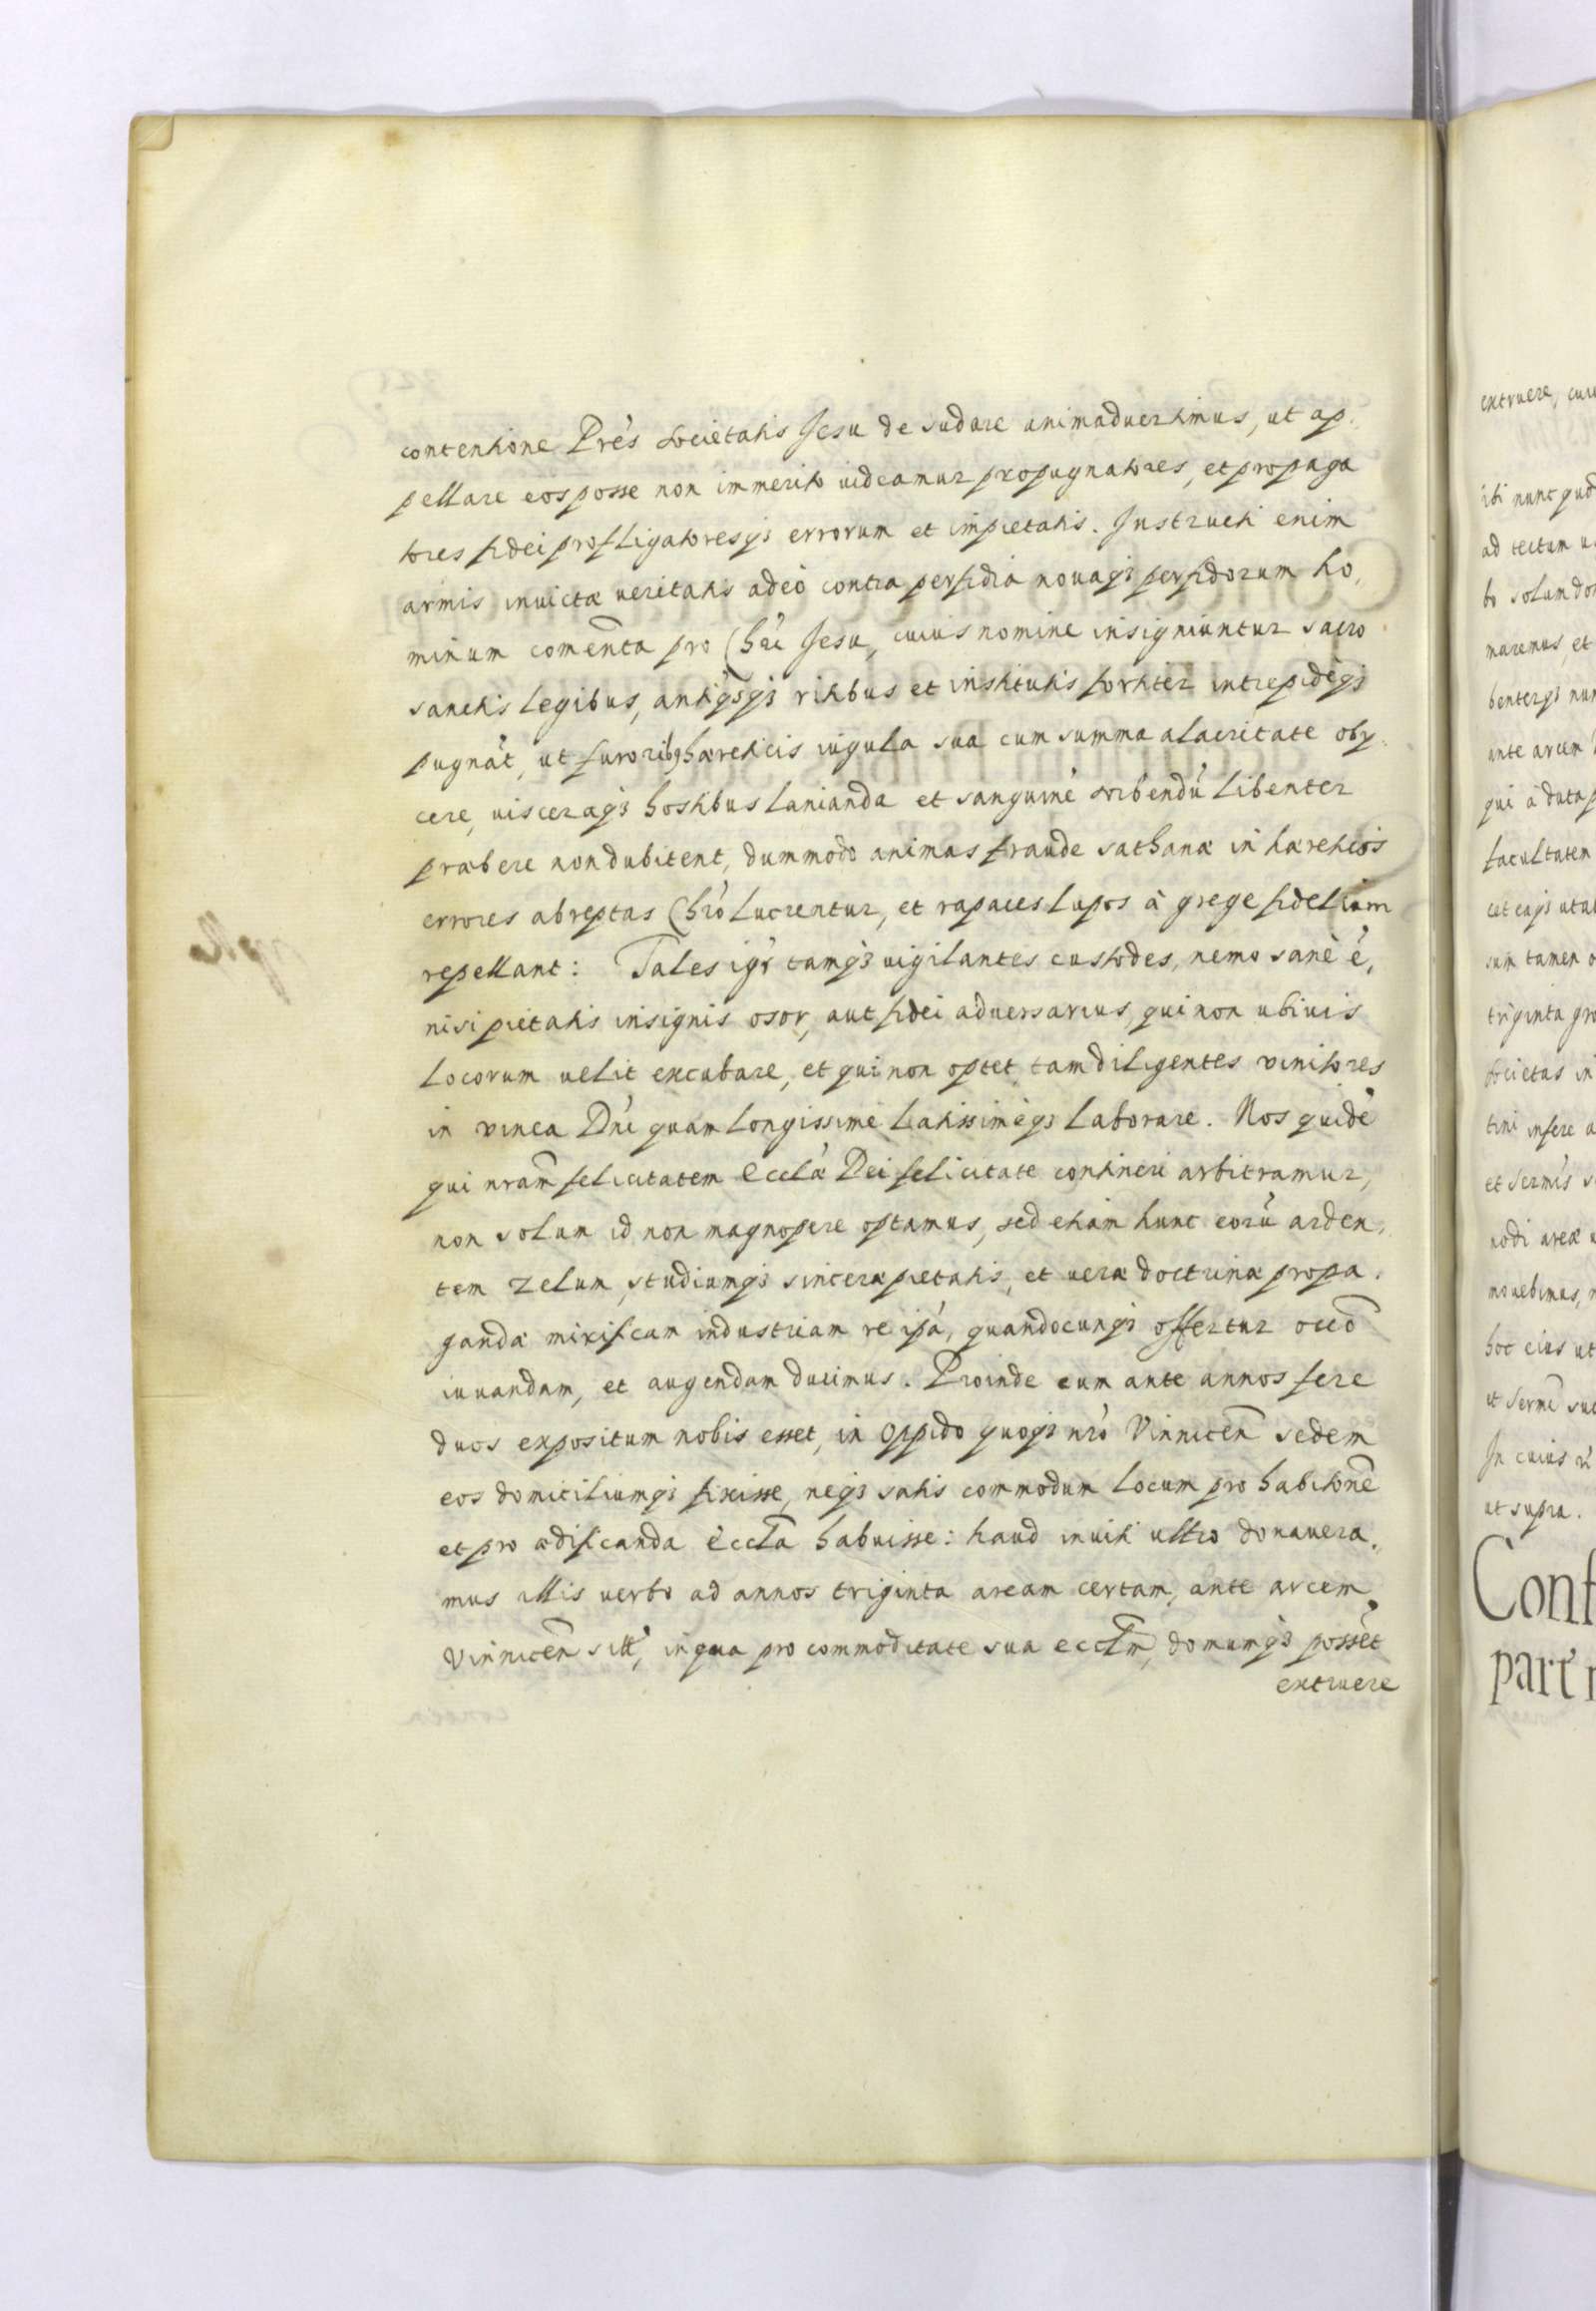 contentione Prẽs Societatis Jesu desudare animaduertimus, ut ap-
pellare eos posse non immerito uideamur propugnatores, et propaga
tores fidei profligatoresq; errorum et impietatis. Instructi enim
armis inuictæ ueritatis adeò contra perfidiã nouaq; perfidorum ho-
minum comẽnta pro Chr̃i Jesu, cuius nomine insigniuntur sacro
sanctis legibus, antiq̃sq; ritibus et institutis fortiter intrepidèq;
pugnãt, ut furorib9 hæreticis iugula sua cum summa alacritate obij-
cere, uisceraq; hostibus lanianda et sanguinẽ sorbendũ libenter
præbere non dubitent, dummodo animas fraude sathanæ in hæreticos
errores abreptas Chr̃o lucrentur, et rapaces lupos à grege fidelium
repellant: Tales ig̃r tamq; uigilantes custodes, nemo sanè ẽ,
nisi pietatis insignis osor, aut fidei aduersarius, qui non ubiuis
locorum uelit excubare, et qui non optet tam diligentes vinitores
in vinea Dñi quam longissimè latissimèq; laborare. Nos quidẽ
qui nram̃ felicitatem Ecclæ̃ Dei felicitate contineri arbitramur,
non solum id non magnopere optamus, sed etiam hunc eorũ arden-
tem zelum, studiumq; sinceræ pietatis, et ueræ doctrinæ propa-
gandæ mirificam industriam re ip̃a, quandocunq; offertur occõ
iuuandam, et augendam ducimus. Proinde cum ante annos fere
duos expositum nobis esset, in oppido quoq; nr̃o Vinnicen̄ sedem
eos domiciliumq; fixisse, neq; satis commodum locum pro habitõne
et pro ædificanda Eccl̃a habuisse: haud inuiti ultro donauera-
mus illis uerbo ad annos triginta aream certam, ante arcem
Vinnicen̄ sitã, in qua pro commoditate sua eccl̃m, domumq; possẽt
extruere